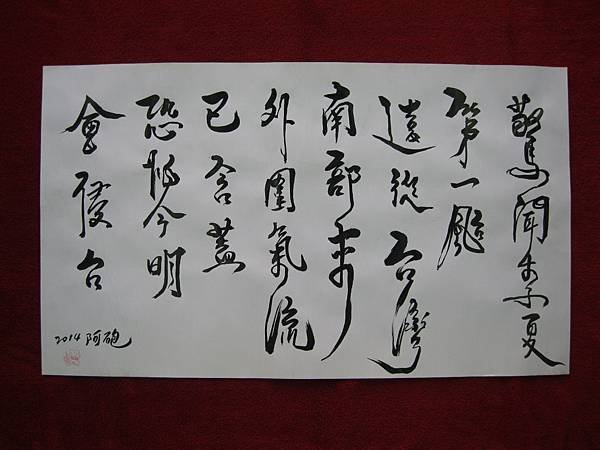 驚聞夏
第一颱
遠從台灣
南部來
外圍氣流
已含蓋
恐怕今明
會侵台
2014 阿砲